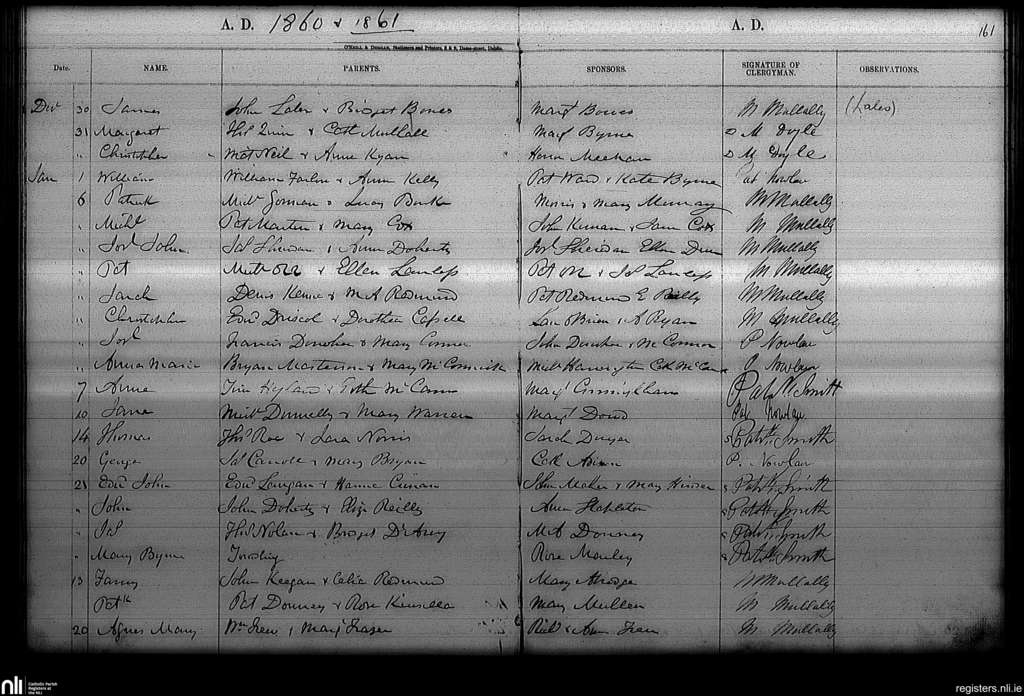 A. D. 1860 & 1861 A. D. 161
O'NEILL & DUGGAN, Stationers and Printers, Dame-street, Dublin.
Date. NAME. PARENTS. SPONSORS. SIGNATURE OF CLERGYMAN. OBSERVATIONS.
Decr 30 James John Lalor & Bridget Bowes Margt Bowes M Mullally (Lales)
31 Margaret Thos Quin & Cath Mullall Margt Byrne D M Doyle
" Christopher Mat Neil & Anne Ryan Honor Meehan D M Doyle
Jan 1 William William & Anne Kelly Pat Ward & Kate Byrne Pat Nowlan
6 Patrick Michl Gorman & Lucy Morris & Mary Murray M Mullally
" Michl Pat Martin & Mary Cox John & Jane Cox M Mullally
" Josh John Jas Sheridan & Anne Doherty Josh Sheridan Ellen M Mullally
" Pat Michl Orr & Ellen Pat & Jas M Mullally
" Sarah Denis & M A Redmond Pat Redmond E Reilly M Mullally
" Christopher Edwd Driscol & Dorothea O'Brien & A Ryan M Mullally
" Josh Francis Donohoe & Mary Connor John Donohoe & M Connor P Nowlan
" Anna Maria Bryan Masterson & Mary McCormick Michl Harrington P Nowlan
7 Anne Tim Hyland & McCann Margt Cunningham Pat Smith
10 Jane Michl Donnelly & Mary Warren Margt Dowd Pat Nowlan
14 Thomas Thos Roe & Sara Norris Sarah Dwyer Patk Smith
20 George Jas Carroll & Mary Bryan Cath P. Nowlan
21 Edwd John Edwd & Hannie John Maher & Mary Patk Smith
" John John Doherty & Eliza Reilly Anne Stapleton Patk Smith
" Jas Thos Nolan & Bridget D'Arcy M A Downey Patk Smith
" Mary Byrne Rose Manley Patk Smith
13 Fanny John Keegan & Celia Redmond Mary M Mullally
" Patk Pat Downey & Rose Kinsella Mary Mullen M Mullally
20 Agnes Mary Wm & Margt Fraser Richd & Anne M Mullally
nli Catholic Parish Registers at the NLI
registers.nli.ie